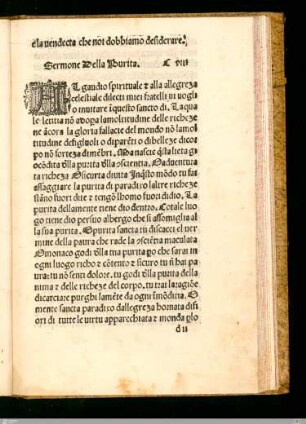 e la vendecta che noi dobbiamo desiderare.
Sermone Della Purita. C VII
AL gaudio spirituale & alla allegreza
celestiale dilecti miei fratelli ui uoglo
o inuitare ĩ questo sancto di. La qua
le letitia nõ adopa la moltitudine delle richeze
ne ãcora la gloria fallacie del mondo nõ la mol
titudine de figluoli o di parẽti o di belleze dico
po nõ forteza di mẽbri. Ma nasce q̃sta lieta gi
ocõdita ꝺlla purita ꝺlla oscentia. O aduentura
ta richeza O sicurta diuita In q̃sto mõdo tu fai
assaggiare la purita di paradiso laltre richeze
stãno fuori di te & tengõ lhomo fuori di dio. La
purita dellamente tiene dio dentro. Cotale luo
go tiene dio per suo albergo che si assomiglia al
la sua purita. O purita sancta tu discacci el ver
mine della paura che rade la oscẽtia maculata
O monaco godi ꝺlla tua purita po che sarai in
ogni luogo richo & cõtento & sicuro tu ñ hai pa
ura: tu nõ senti dolore. tu godi ꝺlla purita della
nima & delle richeze del corpo, tu trai la ragiõe
di cacciare purghi la mẽte da ogni ĩmõditia. O
mente sancta paradiso dallegreza hornata di fi
ori di tutte le virtu apparechiata & monda plo
d ii